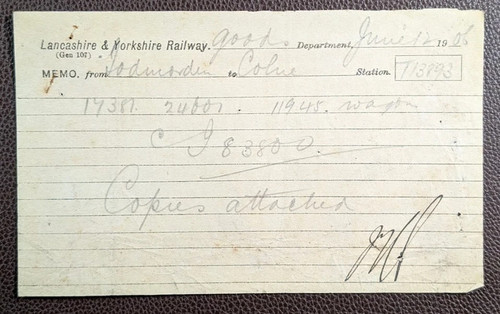 Lancashire & Yorkshire Railway. Goods Department, June 12 1906
(Gen 107)
MEMO. from Todmorden to Colne Station. T13893
17381 24601 11945 wagon
83800
Copies attached